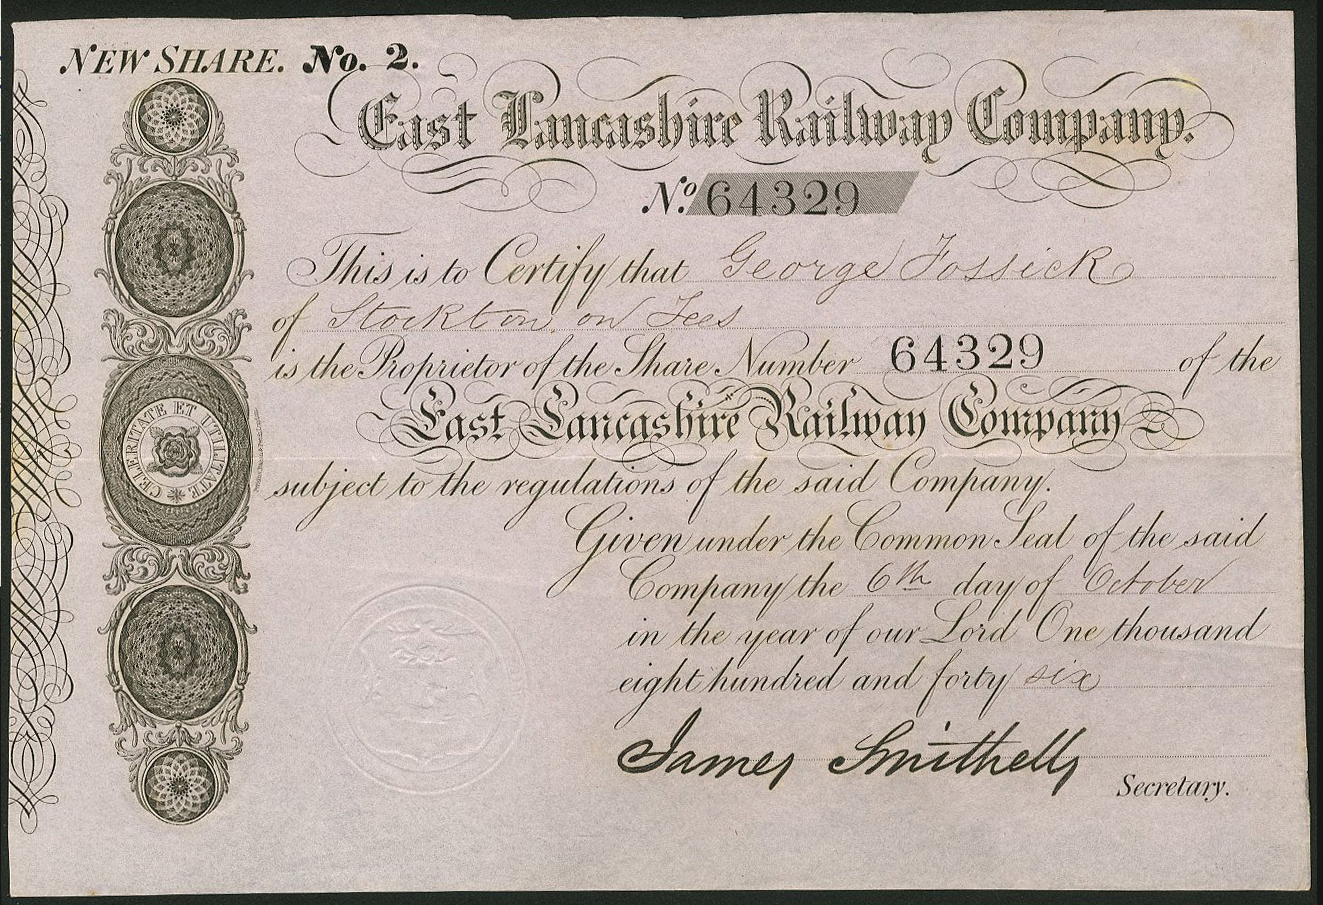 NEW SHARE. No. 2.
East Lancashire Railway Company.
No. 64329
This is to Certify that George Fossick
of Stockton on Tees
is the Proprietor of the Share Number 64329 of the
East Lancashire Railway Company
subject to the regulations of the said Company.
CELERITATE ET UTILITATE
Given under the Common Seal of the said
Company the 6th day of October
in the year of our Lord One thousand
eight hundred and forty six
James Smithells
Secretary.